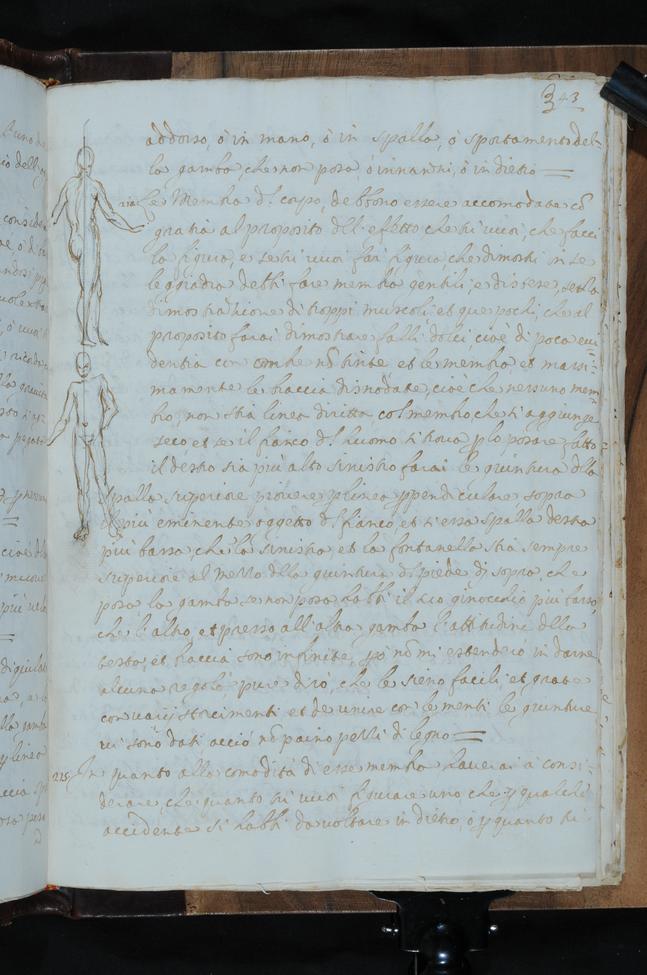 343
addosso, ò in mano, ò in spalla, ò sportamento del-
la gamba, che non posa, ò innanzi, ò in dietro =
Le Membra d'l corpo, debbono essere accomodate cõ
gratia al proposito dll' effetto che tu vuoi, che facci
la figura, e se tu vuoi far figura, che dimostri in se
leggiadria debbi fare membra gentili, e distese, senza
dimostrazione di troppi muscoli et que pochi, che al
proposito farai dimostrare falli dolci cioè di poca eui
dentia con ombre nõ tinte et le membra et massi-
mamente le braccia disnodate, cioè che nessuno mem-
bro, non stia linea diritta, col membro, che s'aggiunge
seco et se il fianco d'l huomo si trova p lo posare fatto
il destro sia più alto sinistro farai la giuntura dlla
spalla superiore piovere p linea ppendiculare sopra
il più eminente oggetto d'l fianco, et sia essa spalla destra
più bassa che la sinistra et la fontanella stia sempre
superiore al mezzo dlla giuntura d'l piede di sopra, che
posa la gamba, che non posa habbi il suo ginocchio più basso,
che l'altro, et presso all' altra gamba l'attitudini dlla
testa, et braccia sono infinite, pò nõ mi estenderò in darne
alcuna regola pure dirò, che le sieno facili, et grate
con varij storcimenti et de unire con le menti le giunture
vi sono dati acciò nõ paino pezzi di legno =
225 In quanto alla comodità di esse membra haverai à consi-
derare, che quanto tu vuoi figurare uno che p qualche
accidente si habbi da voltare in dietro, ò p quanto tu